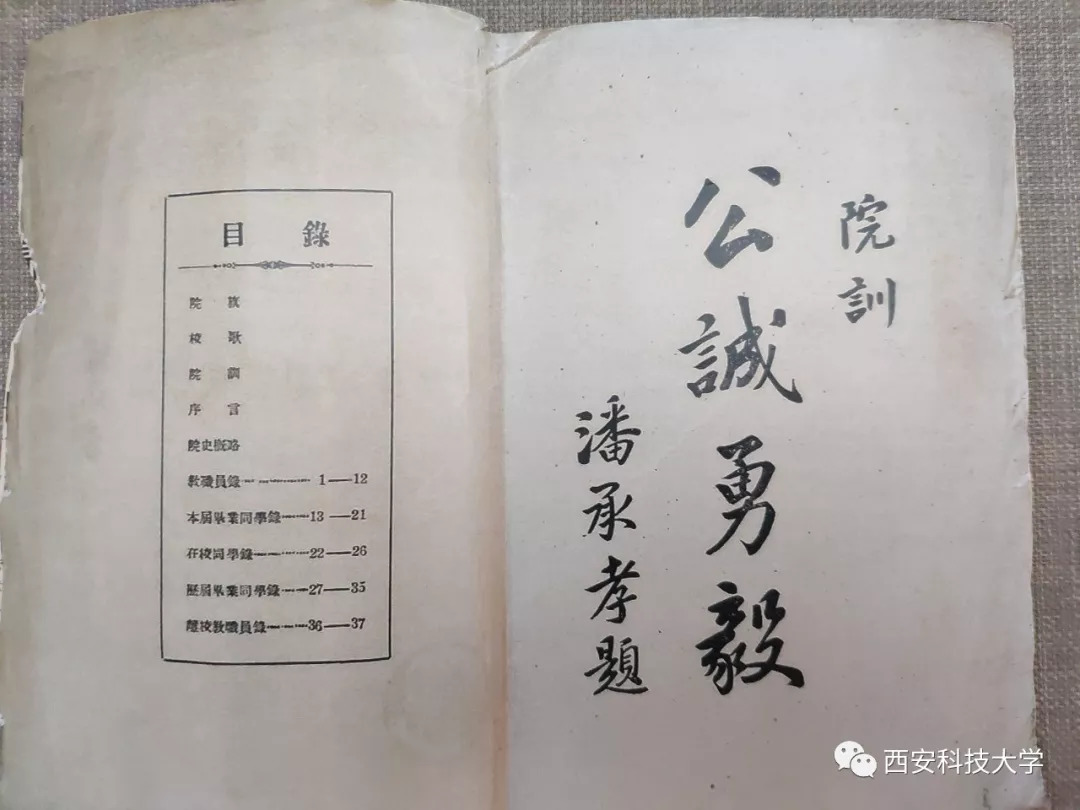 目錄
院旗
校歌
院訓
序言
院史概略
教職員錄 1—12
本屆畢業同學錄 13—21
在校同學錄 22—26
歷屆畢業同學錄 27—35
離校教職員錄 36—37
院訓
公誠勇毅
潘承孝題
西安科技大学